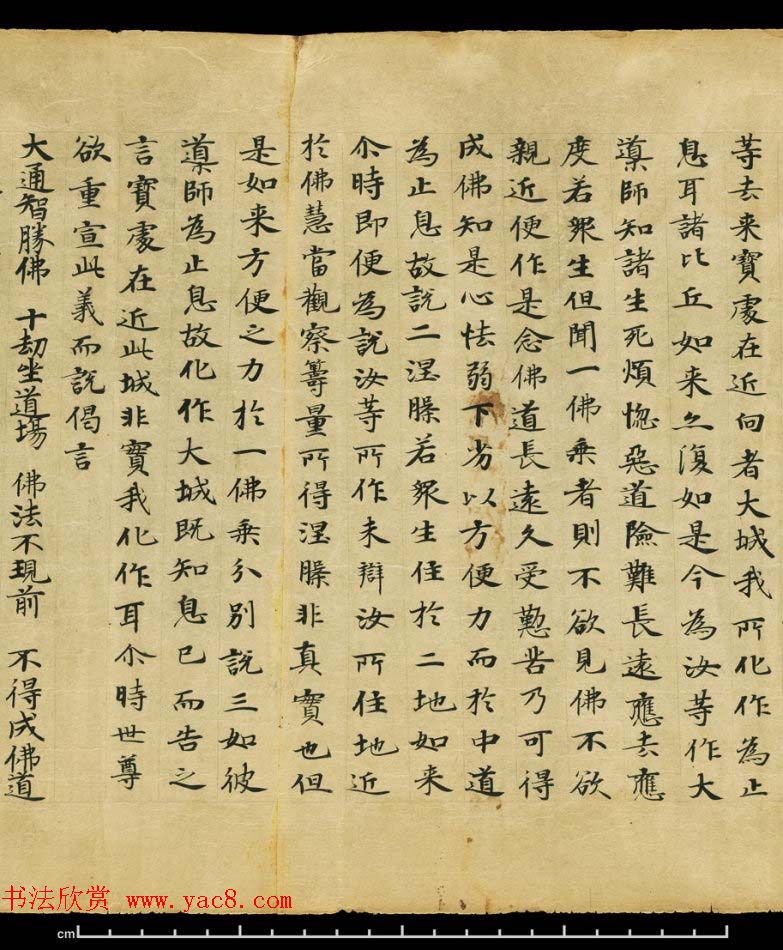 等去来寳處在近向者大城我所化作為止
息耳諸比丘如来亦復如是今為汝等作大
導師知諸生死煩惱惡道險難長遠應去應
度若衆生但聞一佛乗者則不欲見佛不欲
親近便作是念佛道長遠久受懃苦乃可得
成佛知是心怯弱下劣以方便力而於中道
為止息故說二涅槃若衆生住於二地如来
尒時即便為說汝等所作未辯汝所住地近
於佛慧當觀察籌量所得涅槃非真寳也但
是如来方便之力於一佛乗分別說三如彼
導師為止息故化作大城既知息已而告之
言寳處在近此城非實我化作耳尒時世尊
欲重宣此義而說偈言
大通智勝佛 十劫坐道場 佛法不現前 不得成佛道
书法欣赏 www.yac8.com
cm